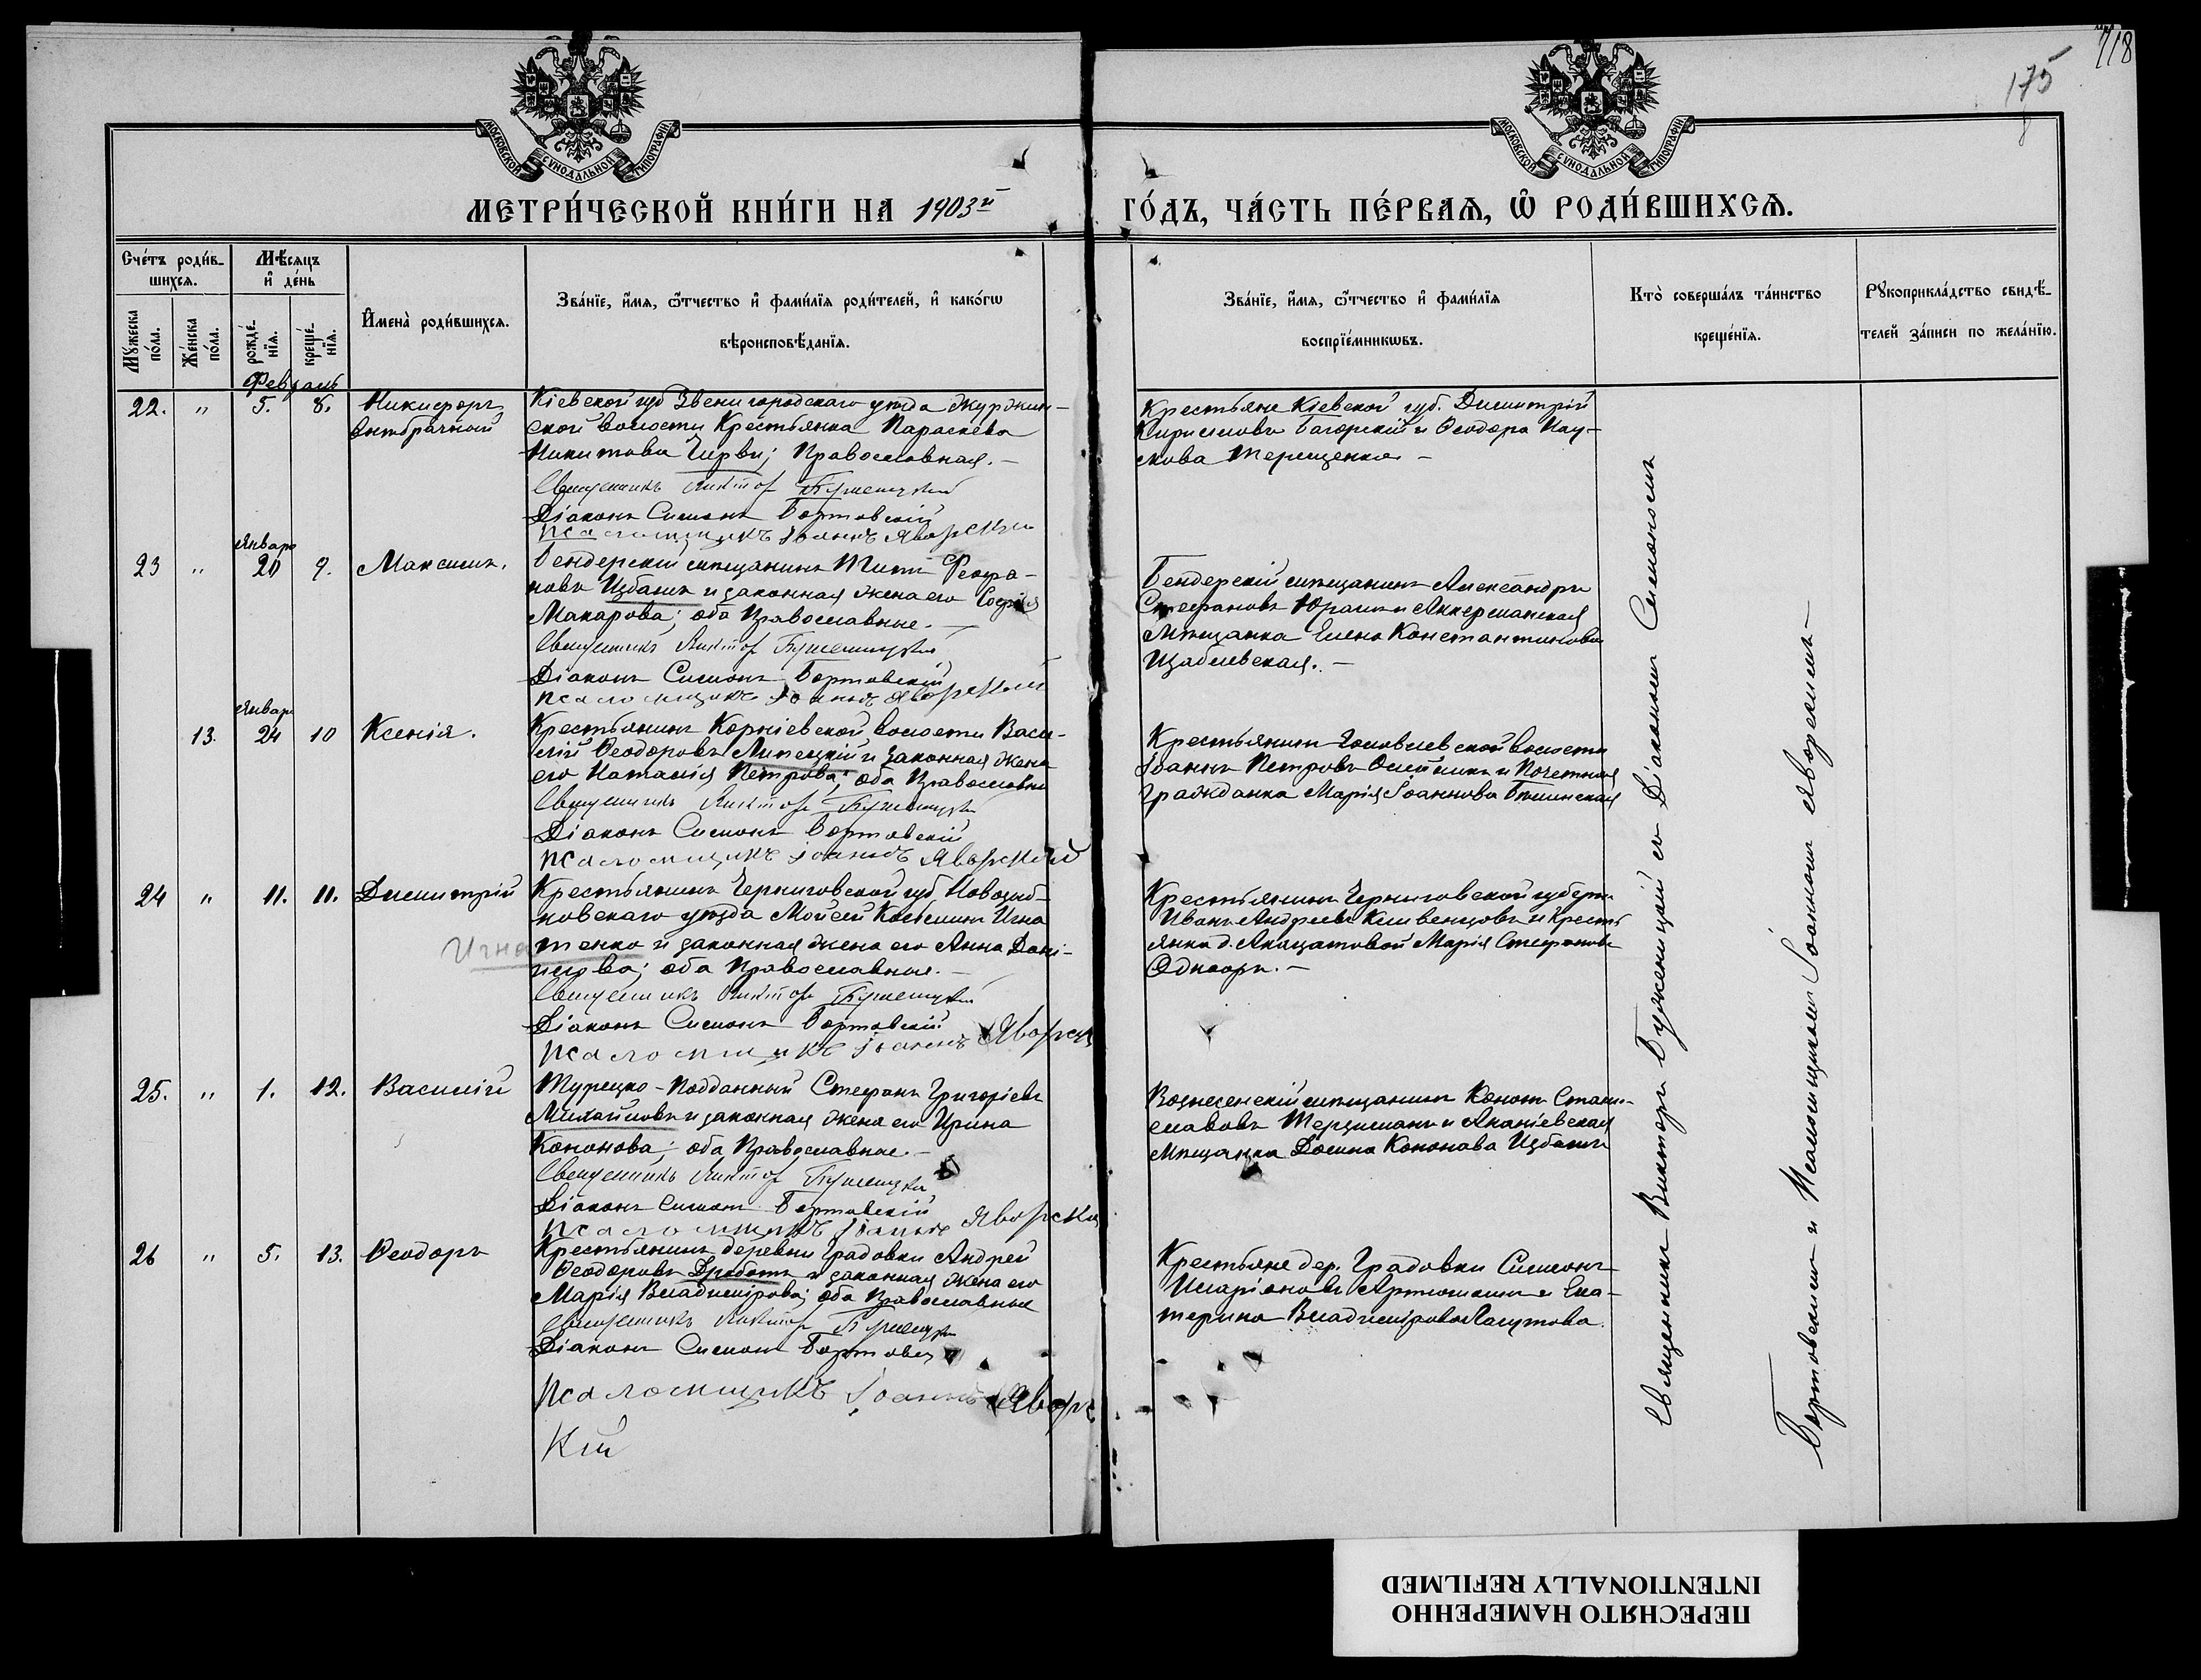 718
175
МОСКОВСКОЙ СѴНОДАЛЬНОЙ ТИПОГРАФІИ
МОСКОВСКОЙ СѴНОДАЛЬНОЙ ТИПОГРАФІИ
МЕТРИ́ЧЕСКОЙ КНИ́ГИ НА 1903й
ГО́ДЪ, ЧА́СТЬ ПЕ́РВАѦ, Ѡ҆ РОДИ́ВШИХСѦ.
Сче́тъ роди́в-
шихсѧ.
Мꙋ́жеска по́ла.
Же́нска по́ла.
Мѣ́сѧцъ
и҆ де́нь
рожде́-
нїѧ.
креще́-
нїѧ.
И҆мена̀ роди́вшихсѧ.
Зва́нїе, и҆́мѧ, ѻ҆́тчество и҆ фами́лїѧ роди́телей, и҆ како́гѡ
вѣроисповѣ́данїѧ.
Зва́нїе, и҆́мѧ, ѻ҆́тчество и҆ фами́лїѧ
воспрїе́мникѡвъ.
Кто̀ соверша́лъ та́инство
креще́нїѧ.
Рꙋкоприкла́дство свидѣ́-
телей за́писи по жела́нїю.
Февраль
22. " 5. 8. Никифоръ
внѣбрачный
Кіевской губ Звенигородскаго уѣзда
ской волости Крестьянка Параскева
Никитова Православная. —
Священникъ Виктор Буженицкій
Діаконъ Симонъ Бортовскій
Псаломщикъ Іоаннъ Яворскій
Крестьяне Кіевской губ. Димитрій
Кирилловъ и Ѳеодора Нау-
мова Терещенко —
Январь
23 " 20 9. Максимъ.
Бендерскій мѣщанинъ Титъ Феофа-
новъ Избашъ и законная жена его Софія
Макарова; оба Православные. —
Священникъ Виктор Буженицкій
Діаконъ Симонъ Бортовскій
Псаломщикъ Іоаннъ Яворскій
Бендерскій мѣщанинъ Александръ
Стефановъ и Аккерманская
мѣщанка Елена Константинова
Щаблевская. —
Январь
13. 24 10 Ксенія.
Крестьянинъ Корніевской волости Васи-
лій Ѳеодоровъ Липецкій и законная жена
его Наталія Петрова; оба Православны
Священникъ Виктор Буженицкій
Діаконъ Симонъ Бортовскій
Псаломщикъ Іоаннъ Яворскій
Крестьянинъ волости
Іоаннъ Петровъ Олейникъ и Почетная
гражданка Марія Іоаннова
24 " 11. 11. Димитрій
Крестьянинъ Черниговской губ Новозыб-
ковскаго уѣзда Мойсей Косьминъ Игна
Игна
тенко и законная жена его Анна Дани-
лова; оба Православные. —
Священникъ Виктор Буженицкій
Діаконъ Симонъ Бортовскій
Псаломщикъ Іоаннъ Яворск
Крестьянинъ Черниговской губерн
Иванъ Андреевъ и кресть
янка д. Марія Стефанова
25. " 1. 12. Василій
Турецко-подданный Стефанъ Григоріевъ
Михайловъ и законная жена его Ирина
Кононова; оба Православные. —
Священникъ Виктор Буженицкій
Діаконъ Симонъ Бортовскій
Псаломщикъ Іоаннъ Яворскі
Вознесенскій мѣщанинъ Кононъ Стани-
славовъ и Ананіевская
мѣщанка Домна Кононова Избашъ
26 " 5. 13. Ѳеодоръ
Крестьянинъ деревни Градовки Андрей
Ѳеодоровъ Драбатъ и законная жена его
Марія Владимірова; оба Православные
Священникъ Виктор Буженицкій
Діаконъ Симонъ Бортовс
Псаломщикъ Іоаннъ Яворс
кій
Крестьяне дер. Градовки Симонъ
Иларіоновъ и Ека-
терина Владимірова
Священникъ Викторъ Буженицкій съ Діакономъ Симономъ
Бортовскимъ и Псаломщикомъ Іоанномъ Яворскимъ —
ПЕРЕСНЯТО НАМЕРЕННО
INTENTIONALLY REFILMED